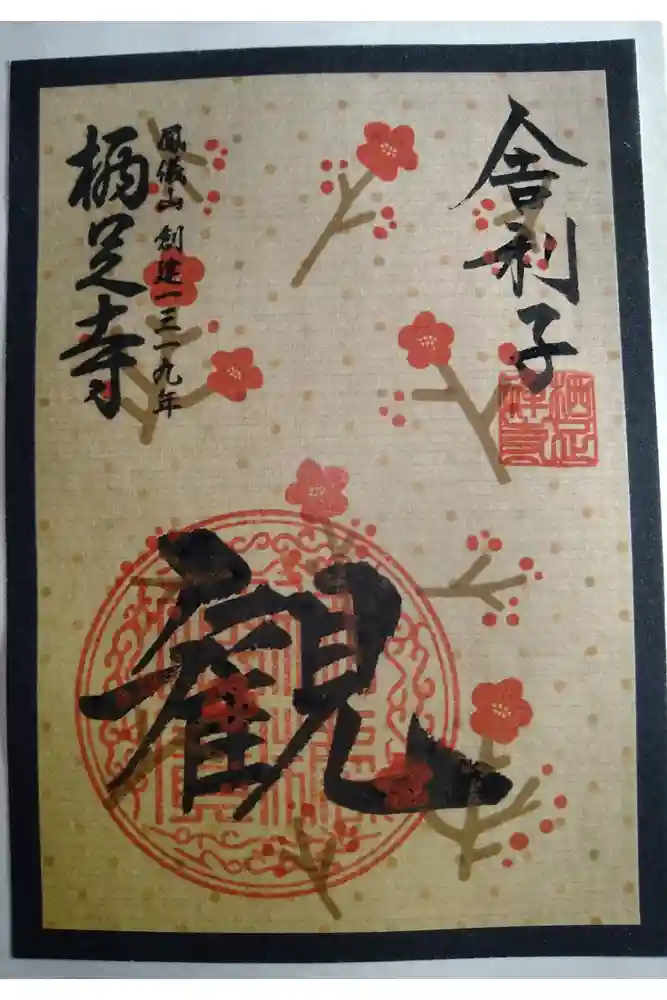 舎利子
観
鳳儀山 創建一三一九年
栖足寺